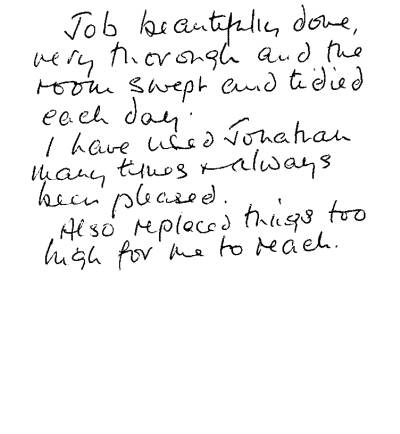 Job beautifully done,
very thorough and the
room swept and tidied
each day.
I have used Jonathan
many times & always
been pleased.
Also replaced things too
high for me to reach.